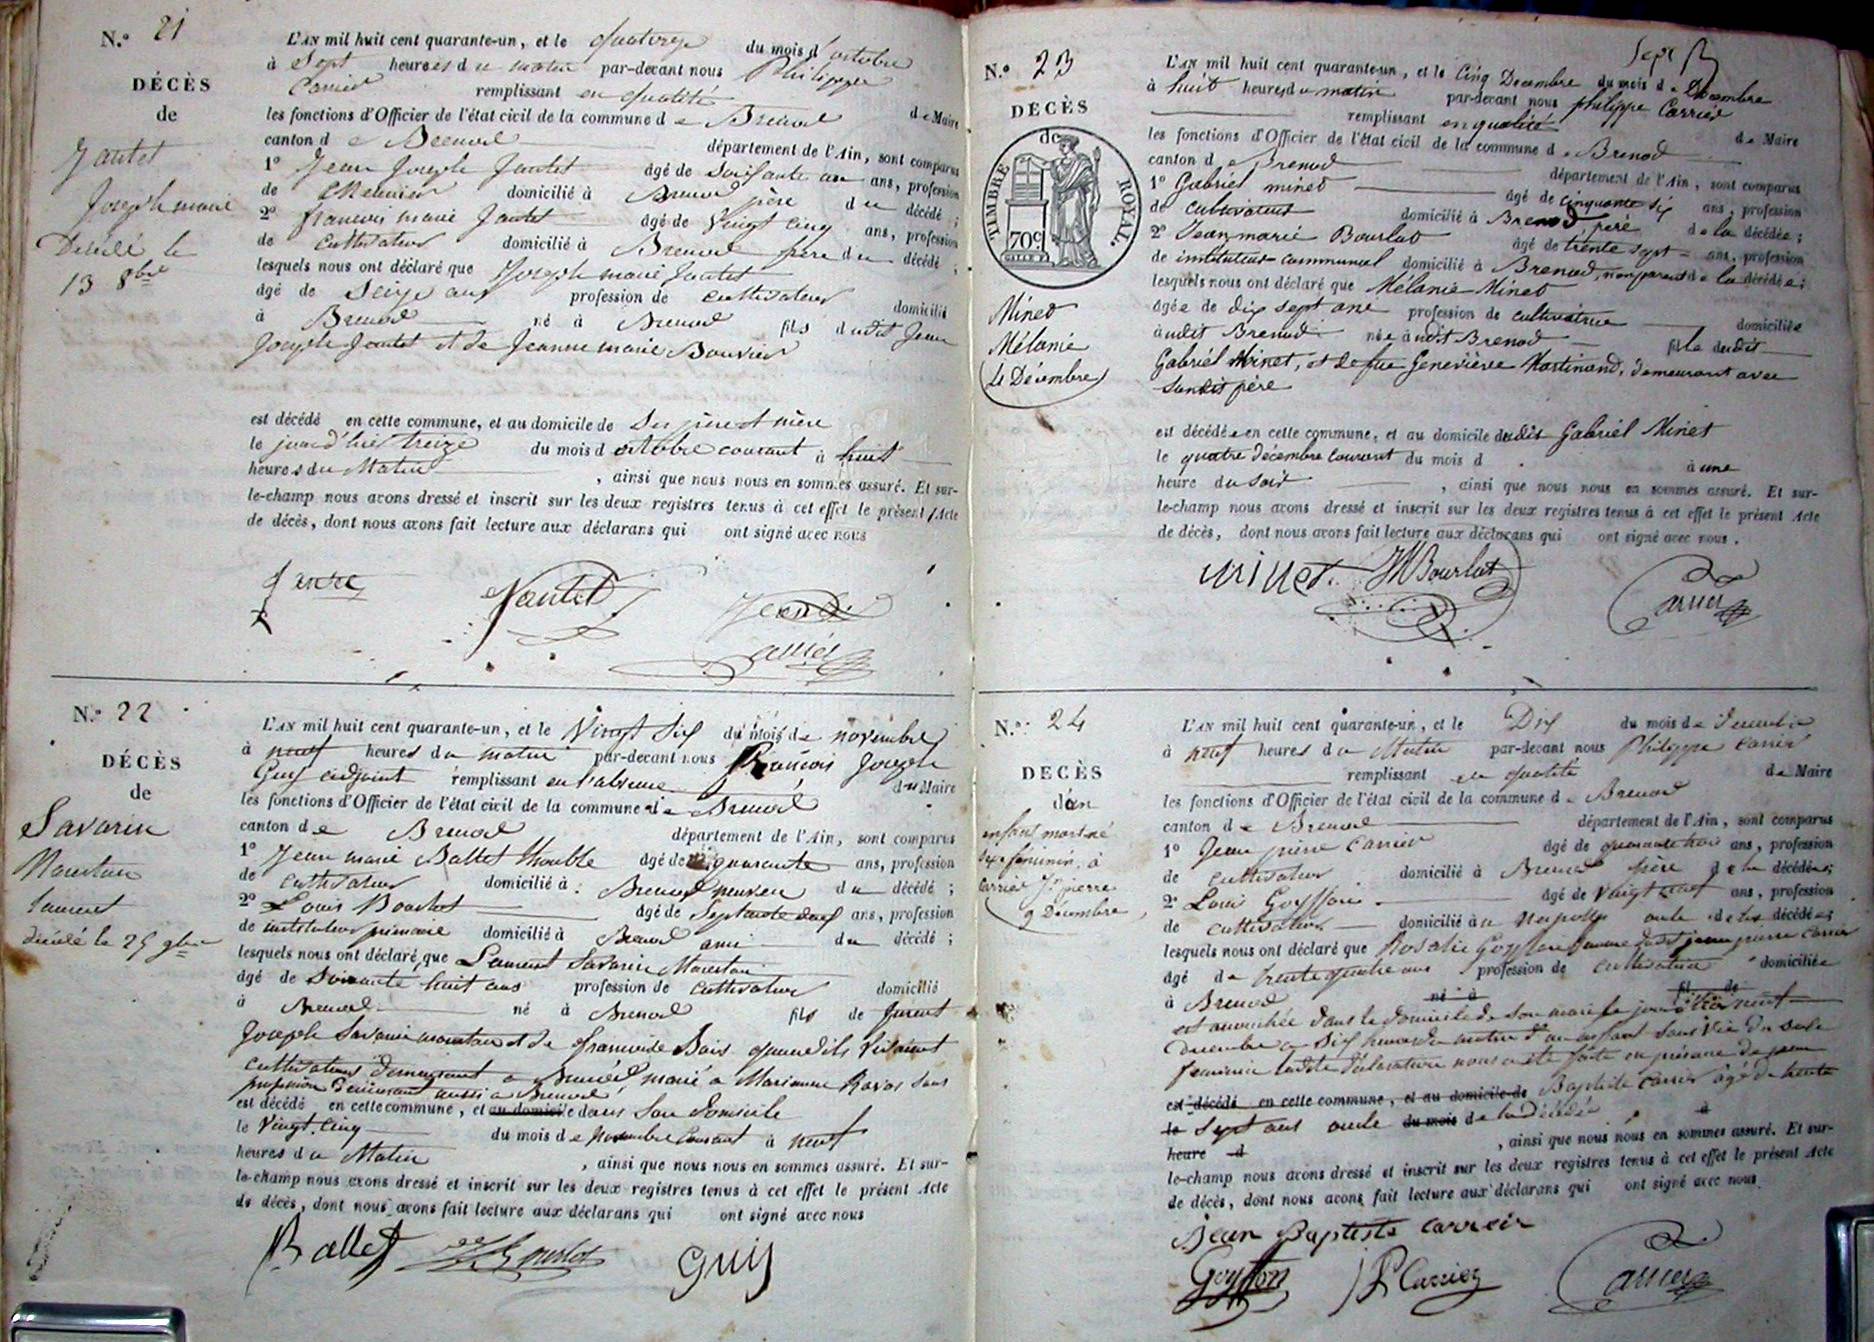 N.° 21
DÉCÈS
de
Jantet
Joseph marie
Décédé le
13 8bre
L'AN mil huit cent quarante-un, et le quatorze du mois d'octobre
à Sept heures du matin par-devant nous Philippe
Carrier remplissant en qualité de Maire
les fonctions d'Officier de l'état civil de la commune de Brenod
canton de Brenod département de l'Ain, sont comparus
1° Jean Joseph Jantet âgé de soixante un ans, profession
de Meunier domicilié à Brenod père du décédé ;
2° françois marie Jantet âgé de Vingt cinq ans, profession
de cultivateur domicilié à Brenod frère du décédé ;
lesquels nous ont déclaré que Joseph marie Jantet
âgé de Seize ans profession de cultivateur domicilié
à Brenod né à Brenod fils dudit Jean
Joseph Jantet et de Jeanne marie Bouvier
est décédé en cette commune, et au domicile de Ses père et mère
le jour d'hier treize du mois d'octobre courant à huit
heures du Matin , ainsi que nous nous en sommes assuré. Et sur-
le-champ nous avons dressé et inscrit sur les deux registres tenus à cet effet le présent Acte
de décès, dont nous avons fait lecture aux déclarans qui ont signé avec nous
Jantet
Carrier
N.° 22
DÉCÈS
de
Savarin
Mourtau
Laurent
décédé le 25 9bre
L'AN mil huit cent quarante-un, et le Vingt Six du mois de novembre
à neuf heures du matin par-devant nous François Joseph
Guy adjoint remplissant en l'absence du Maire
les fonctions d'Officier de l'état civil de la commune de Brenod
canton de Brenod département de l'Ain, sont comparus
1° Jean marie Ballet âgé de quarante ans, profession
de cultivateur domicilié à Brenod neveu du décédé ;
2° Louis Bourlot âgé de Septante deux ans, profession
de instituteur primaire domicilié à Brenod ami du décédé ;
lesquels nous ont déclaré que Laurent Savarin Mourtau
âgé de Soixante huit ans profession de cultivateur domicilié
à Brenod né à Brenod fils de furent
Joseph Savarin mourtau et de françoise Bois quand ils vivaient
cultivateurs demeurant à Brenod, marié à Marianne Ravos sans
profession demeurant aussi à Brenod
est décédé en cette commune, et au domicile dans Son domicile
le Vingt cinq du mois de novembre courant à neuf
heures du Matin , ainsi que nous nous en sommes assuré. Et sur-
le-champ nous avons dressé et inscrit sur les deux registres tenus à cet effet le présent Acte
de décès, dont nous avons fait lecture aux déclarans qui ont signé avec nous
Ballet Bourlot Guy
Sept
N.° 23
DÉCÈS
de
TIMBRE ROYAL.
70c
Minet
Mélanie
(4 Décembre)
L'AN mil huit cent quarante-un, et le Cinq Decembre du mois de Décembre
à huit heures du matin par-devant nous philippe Carrier
remplissant en qualité de Maire
les fonctions d'Officier de l'état civil de la commune de Brenod
canton de Brenod département de l'Ain, sont comparus
1° Gabriel minet âgé de cinquante six ans, profession
de cultivateur domicilié à Brenod, père de la décédée ;
2° Jean marie Bourlot âgé de trente sept ans, profession
de instituteur communal domicilié à Brenod, non parent de la décédée ;
lesquels nous ont déclaré que Mélanie Minet
âgée de dix sept ans profession de cultivatrice domiciliée
audit Brenod née audit Brenod fille dudit
Gabriel Minet, et de fue Geneviève Martinand, demeurant avec
sondit père
est décédée en cette commune, et au domicile dudit Gabriel Minet
le quatre décembre courant du mois d à une
heure du soir , ainsi que nous nous en sommes assuré. Et sur-
le-champ nous avons dressé et inscrit sur les deux registres tenus à cet effet le présent Acte
de décès, dont nous avons fait lecture aux déclarans qui ont signé avec nous.
minet. JM Bourlot Carrier
N.° 24
DÉCÈS
d'un
enfant mort né
sexe féminin à
Carrier Jn pierre
9 Décembre
L'AN mil huit cent quarante-un, et le Dix du mois de Decembre
à neuf heures du Matin par-devant nous Philippe Carrier
remplissant en qualité de Maire
les fonctions d'Officier de l'état civil de la commune de Brenod
canton de Brenod département de l'Ain, sont comparus
1° Jean pierre Carrier âgé de quarante trois ans, profession
de cultivateur domicilié à Brenod père de la décédée ;
2° Louis Goyffon âgé de Vingt neuf ans, profession
de cultivateur domicilié à oncle de la décédée ;
lesquels nous ont déclaré que Rosalie Goyffon femme dudit jean pierre Carrier
âgé de trente quatre ans profession de cultivatrice domiciliée
à Brenod né à fil de
est accouchée dans le domicile de Son mari le jour d'hier neuf
Decembre à Dix heures du matin d'un enfant Sans Vie du Sexe
feminin ladite déclaration nous a été faite en présence de jean
est décédé en cette commune, et au domicile de Baptiste Carrier âgé de trente
le Sept ans oncle du mois de la Décédée à
heure d , ainsi que nous nous en sommes assuré. Et sur-
le-champ nous avons dressé et inscrit sur les deux registres tenus à cet effet le présent Acte
de décès, dont nous avons fait lecture aux déclarans qui ont signé avec nous
Jean Baptiste Carrier
Goyffon JP Carrier Carrier